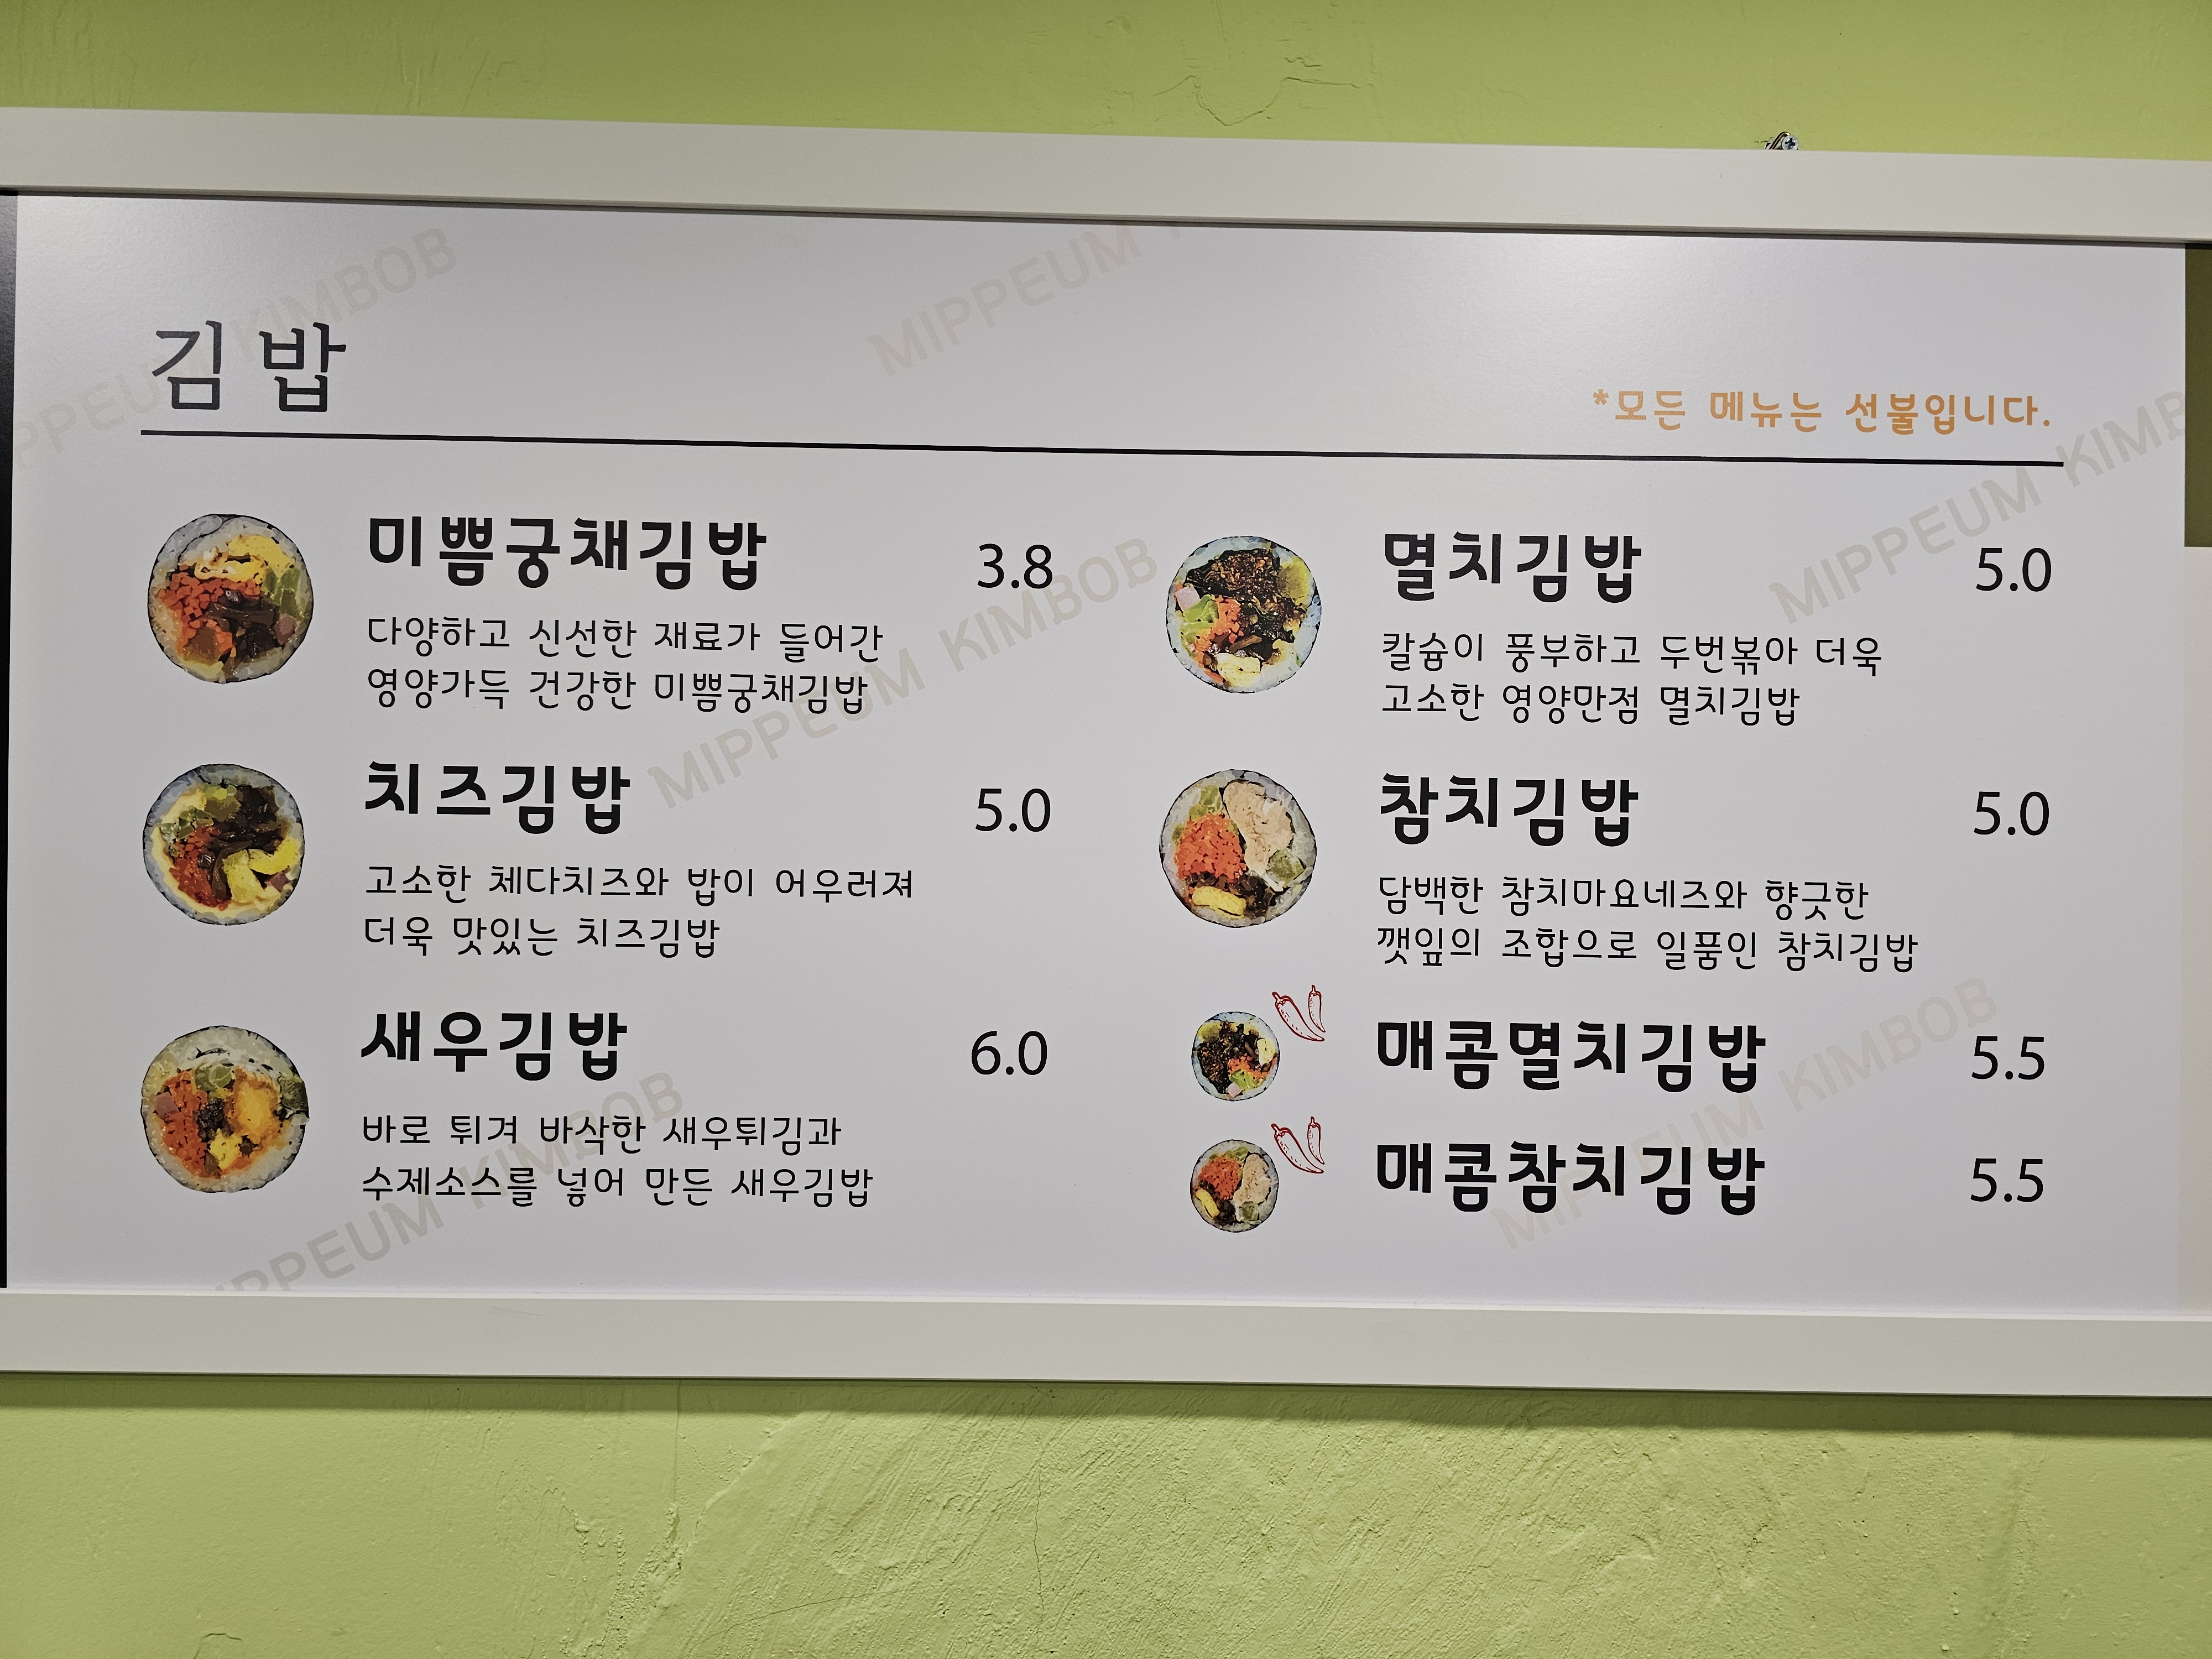 김밥
*모든 메뉴는 선불입니다.
미쁨궁채김밥 3.8
다양하고 신선한 재료가 들어간
영양가득 건강한 미쁨궁채김밥
치즈김밥 5.0
고소한 체다치즈와 밥이 어우러져
더욱 맛있는 치즈김밥
새우김밥 6.0
바로 튀겨 바삭한 새우튀김과
수제소스를 넣어 만든 새우김밥
멸치김밥 5.0
칼슘이 풍부하고 두번볶아 더욱
고소한 영양만점 멸치김밥
참치김밥 5.0
담백한 참치마요네즈와 향긋한
깻잎의 조합으로 일품인 참치김밥
매콤멸치김밥 5.5
매콤참치김밥 5.5
MIPPEUM KIMBOB
MIPPEUM
MIPPEUM KIMBOB
MIPPEUM KIMBOB
MIPPEUM KIMBOB
MIPPEUM KIMBOB